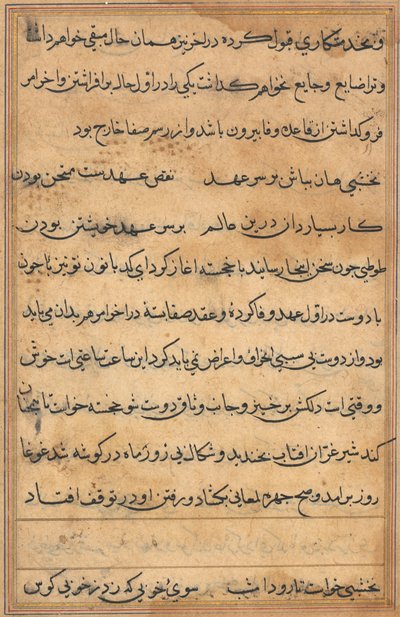 و بخدمتکاری قبول کرده در اخر نیز همان حال مبقی خواهم داشت
و ترا ضایع و جایع نخواهم کذاشت یکی را در اول حال برافراشتن و اخر امر
فرو کذاشتن از قاعده وفا بیرون باشد و از رسم صفا خارج بود
نخشبی هان بباش بر سر عهد نقض عهدست ممتحن بودن
کار بسیار دان درین عالم بر سر عهد خویشتن بودن
طوطی چون سخن اینجا رسانید با خجسته اغاز کرد ای کدبانو تو نیز باید چون
با دوست در اول عهد وفا کردهٔ و عقد صفا بستهٔ در اخر امر هم بدان می باید
بود و از دوست بی سببی انحراف و اعراض نمی باید کرد این ساعت ساعتی است خوش
و وقتی است دلکش برخیز و جانب وثاق دوست شو خجسته خواست تا همچنان
کند شیر غران افتاب بخندید و شکال بی زور ماه در کوشه شد غوغا
روز برامد و صبح چهره لمعانی بکشاد و رفتن او در توقف افتاد
نخشبی خواست تا رود امشب سوی خوبی که زد ز خوبی کوس